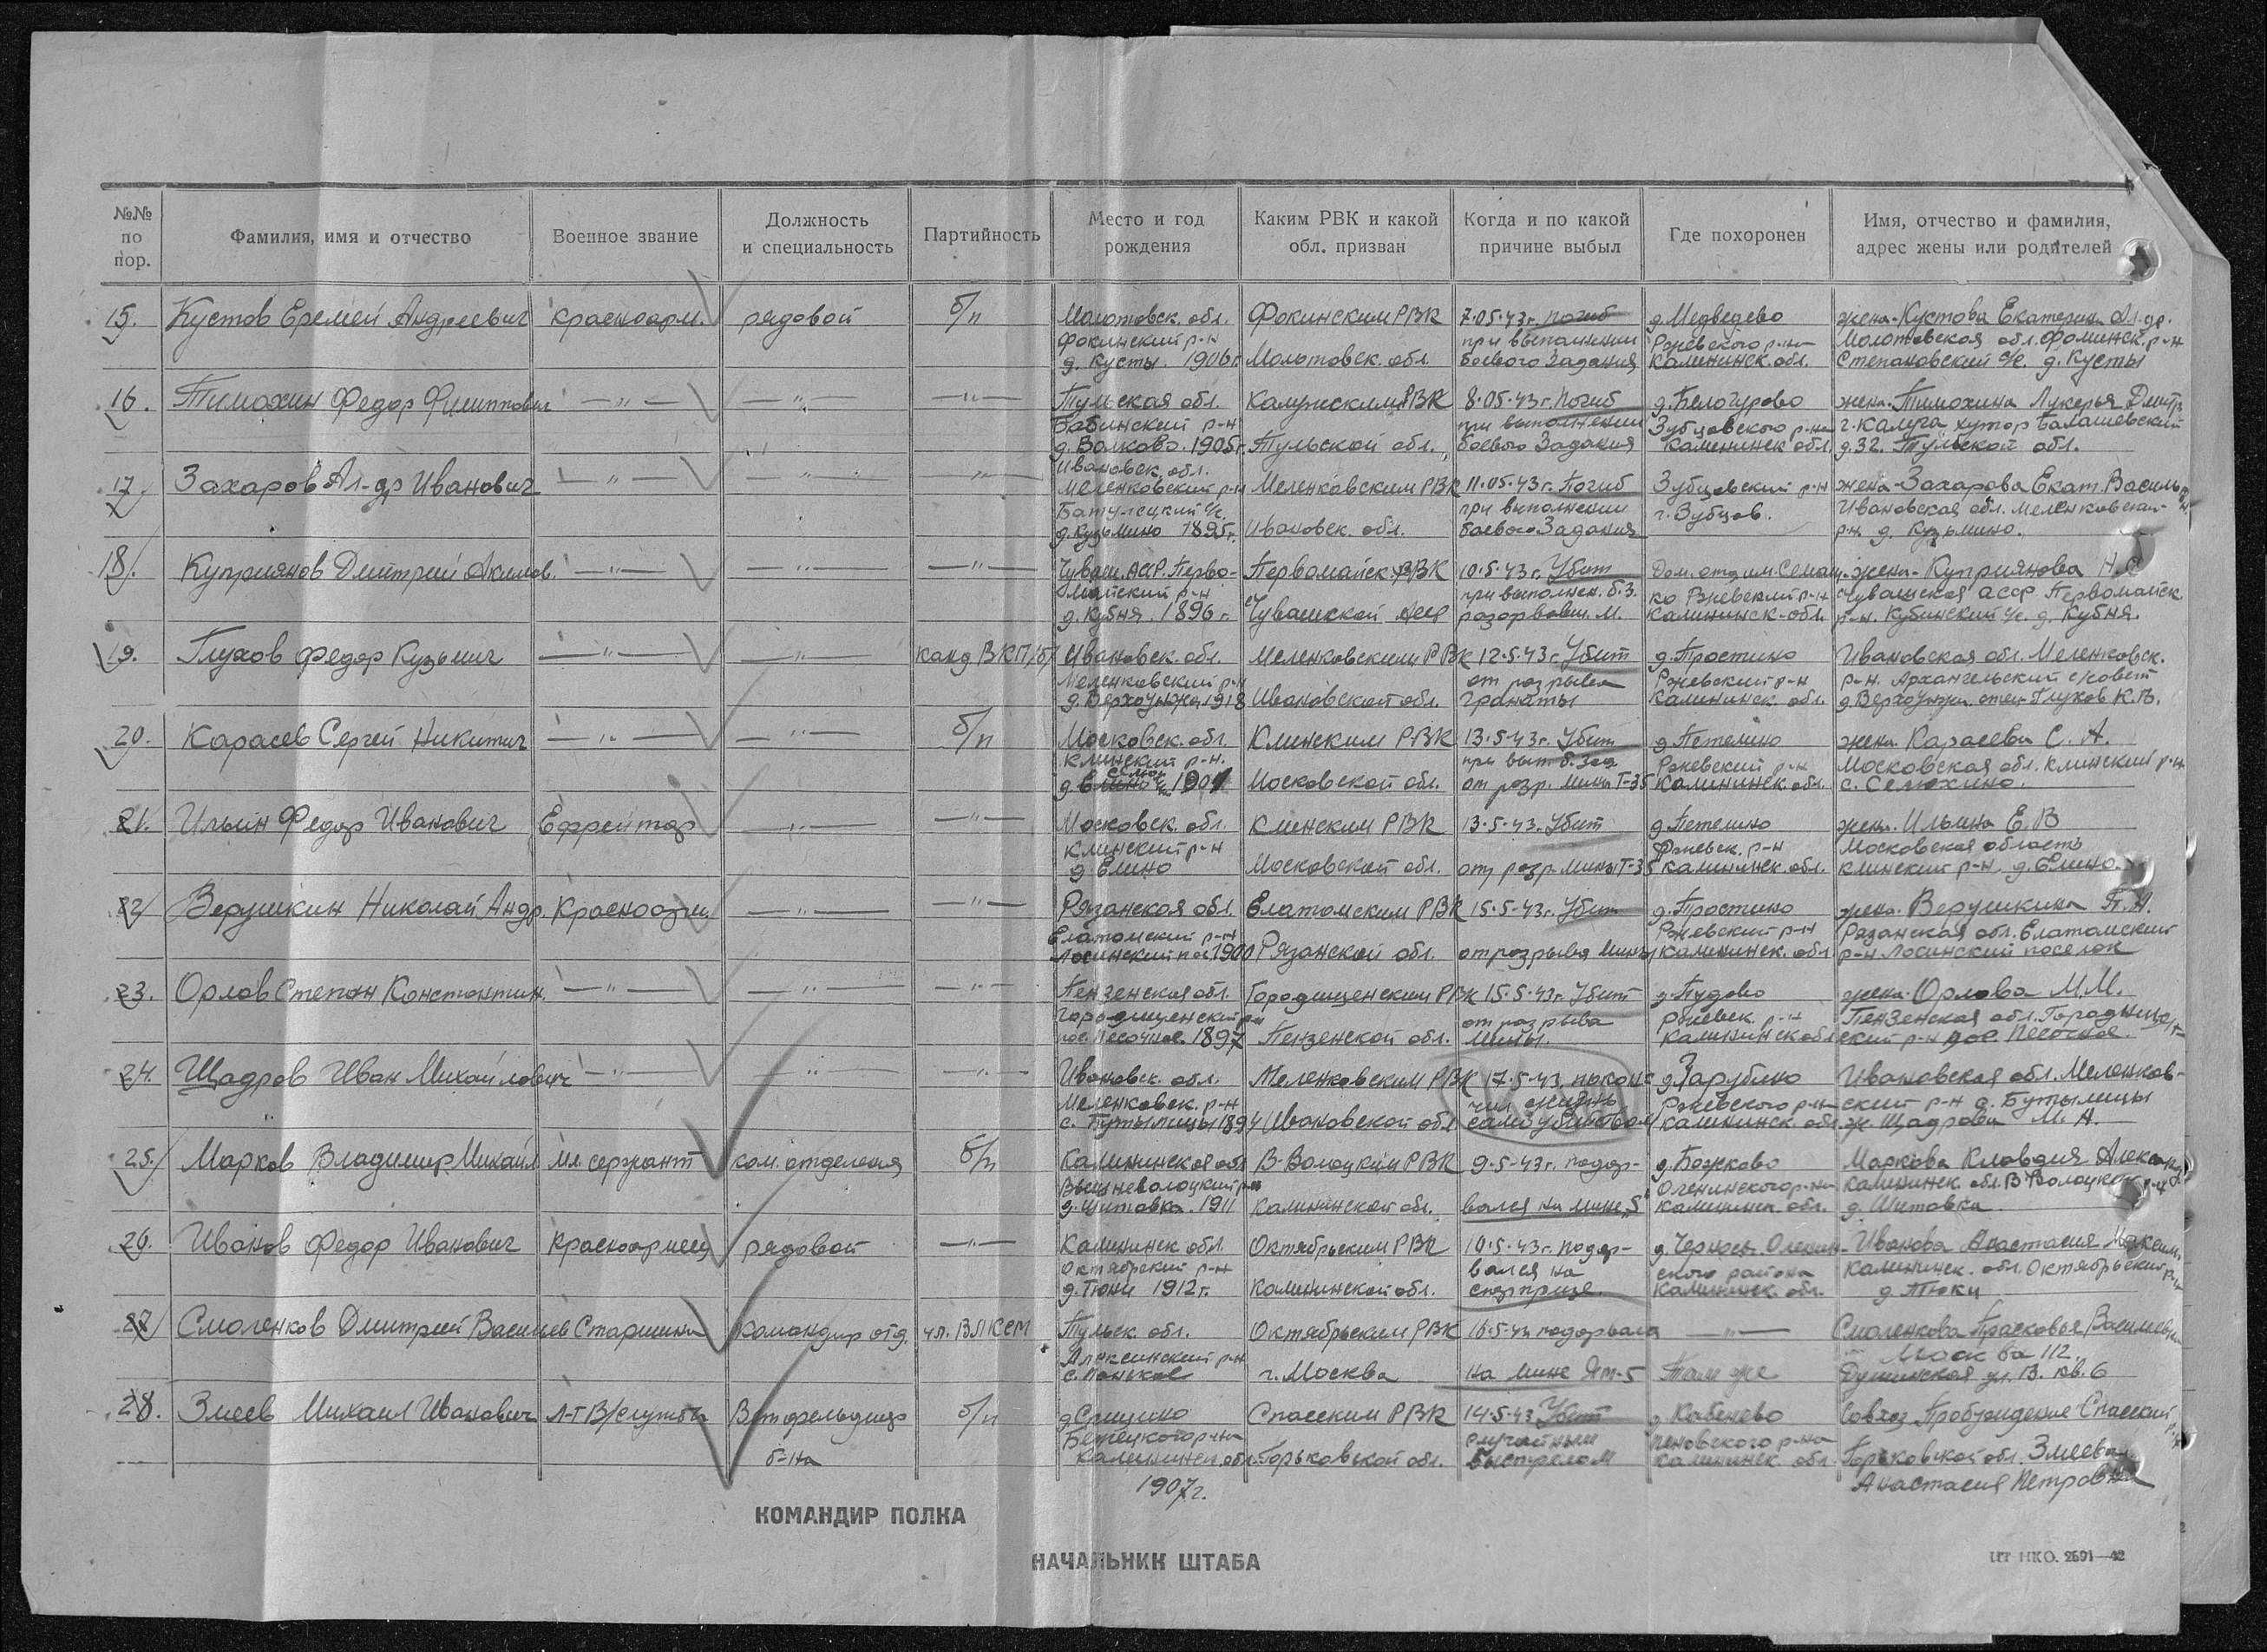 №№ по пор. Фамилия, имя и отчество Военное звание Должность и специальность Партийность Место и год рождения Каким РВК и какой обл. призван Когда и по какой причине выбыл Где похоронен Имя, отчество и фамилия, адрес жены или родителей
15. Кустов Еремей Андреевич красноарм. рядовой б/п Молотовск. обл. Фокинским РВК 7.05.43г. погиб д. Медведево жена-Кустова Екатерина Ал.др.
Фокинский р-н при выполнении Ржевского р-на Молотовская обл. Фоминск. р-н
д. Кусты. 1906г. Молотовск. обл. боевого задания Калининск. обл. Степановский с/с. д. Кусты
16. Тимохин Федор Филиппович —"— —"— —"— Тульская обл. Калужским РВК 8.05.43г. погиб д. Белогурово жена-Тимохина Лукерья Дмитр
Бабынский р-н при выполнении Зубцовского р-на г. Калуга хутор Балашевский
д. Волково. 1905г. Тульской обл. боевого задания Калининск обл. д. 32. Тульской обл.
Ивановск. обл.
17. Захаров Ал-др Иванович —"— " " —"— Меленковский р-н Меленковским РВК 11.05.43г. Погиб Зубцовский р-н жена-Захарова Екат. Василь
при выполнении г. Зубцов. Ивановская обл. Меленковский
д. Кузьмино 1895г. Ивановск. обл. боевого задания р-н. д. Кузьмино.
18. Куприянов Дмитрий Акимов. —"— —"— —"— Чуваш. АССР. Перво- Первомайск. РВК 10.5.43г. Убит Дом. отд. им. Семаш- жена-Куприянова Н.
майский р-н при выполнен. б.з. ко Ржевский р-н Чувашская АССР Первомайск
д. Кубня. 1896г. Чувашской АССР разорвавш. м. Калининск. обл. р-н. Кубинский с/с. д. Кубня.
19. Глухов Федор Кузьмич —"— —"— канд ВКП/б/ Ивановск. обл. Меленковским РВК 12.5.43г. Убит д. Простино Ивановская обл. Меленковск.
Меленковский р-н от разрыва Ржевский р-н р-н. Архангельский с/совет
д. Верхоунжа 1918 Ивановской обл. гранаты Калининск. обл. д. Верхоунжа отец Глухов К.В.
20. Карасев Сергей Никитич —"— —"— б/п Московск. обл. Клинским РВК 13.5.43г. Убит д. Петелино жена Карасева С. А.
Клинский р-н. при вып. б. зад Ржевский р-н Московская обл. Клинский р-н
1901 Московской обл. от разр. мины Т-35 Калининск. обл. с. Селюхино.
21. Ильин Федор Иванович Ефрейтор —"— —"— Московск. обл. Клинским РВК 13.5.43. Убит д. Петелино жена. Ильина Е. В
Клинский р-н Ржевск. р-н Московская область
д Елино Московской обл. от разр. мины Т-35 Калининск. обл. Клинский р-н. д. Елино.
22 Верушкин Николай Андр. Красноарм. —"— —"— Рязанская обл. Елатомским РВК 15.5.43г. Убит д. Простино жена. Верушкина П. Н.
Елатомский р-н Ржевский р-н Рязанская обл. Елатомский
Лосинский пос. 1900 Рязанской обл. от разрыва мины Калининск. обл. р-н Лосинский поселок
23. Орлов Степан Константин. —"— —"— —"— Пензенская обл. Городищенским РВК 15.5.43г. Убит д. Пудово жена-Орлова М.М.
Городищенский р-н от разрыва Ржевск. р-н Пензенская обл. Городищ
пос. Песочное. 1897 Пензенской обл. мины. Калининск обл. ский р-н пос. Песочное.
24. Щадров Иван Михайлович —"— " —"— Ивановск. обл. Меленковским РВК 17.5.43. покон- д. Зарубино Ивановская обл. Меленков-
Меленковск. р-н чил жизнь Ржевского р-на ский р-н с. Бутылицы
с. Бутылицы 1894 Ивановской обл самоубийством Калининск. обл. ж. Щадрова М. А.
25. Марков Владимир Михайл мл. сержант ком. отделения б/п Калининская обл В-Волоцким РВК 9.5.43г. подор- д. Божково Маркова Клавдия Александ
Вышневолоцкий р-н Оленинского р-на Калининск. обл. В Волоцкий р-н
д. Шитовка. 1911 Калининской обл. вался на мине „S" Калининск. обл. д. Шитовка
26. Иванов Федор Иванович красноармеец рядовой —"— Калининск обл. Октябрьским РВК 10.5.43г. подор- Иванова Анастасия Максим.
Октябрский р-н вался на ского района Калининск. обл. Октябрьский р-н
1912г. Калининской обл. сюрпризе. Калининск. обл.
27 Смоленков Дмитрий Васильев Старшина командир отд. чл. ВЛКСМ Тульск. обл. Октябрьским РВК 16.5.43 подорвался —"— Смоленкова Прасковья Васильев
Алексинский р-н Москва 112.
с. Панское г. Москва на мине ЯМ-5 Там же кв. 6
28. Змеев Михаил Иванович Л-т В/службы Ветфельдшер б/п Спасским РВК 14.5.43 Убит Совхоз Пробуждение Спасский
Бежецкого р-на случайным р-на
б-на Калининск. обл. Горьковской обл. выстрелом Калининск. обл. Горьковской обл. Змеева
1907г. Анастасия Петровна
КОМАНДИР ПОЛКА
НАЧАЛЬНИК ШТАБА